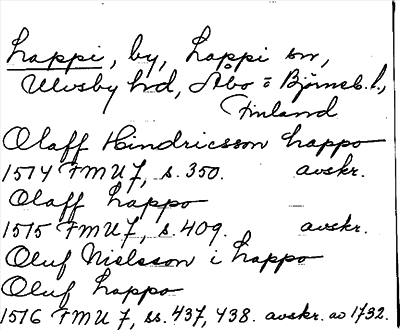 Lappi, by, Lappi sn,
Ulvsby hd, Åbo o Björneb. l.,
Finland
Olaff Hindricsson Lappo
1514 FMU 7, s. 350. avskr.
Olaff Lappo
1515 FMU 7, s. 409. avskr.
Oluf Nielsson i Lappo
Oluf Lappo
1516 FMU 7, ss. 437, 438. avskr. av 1732.